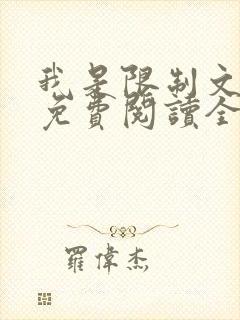 我是限制文
免費閱讀全
羅偉杰